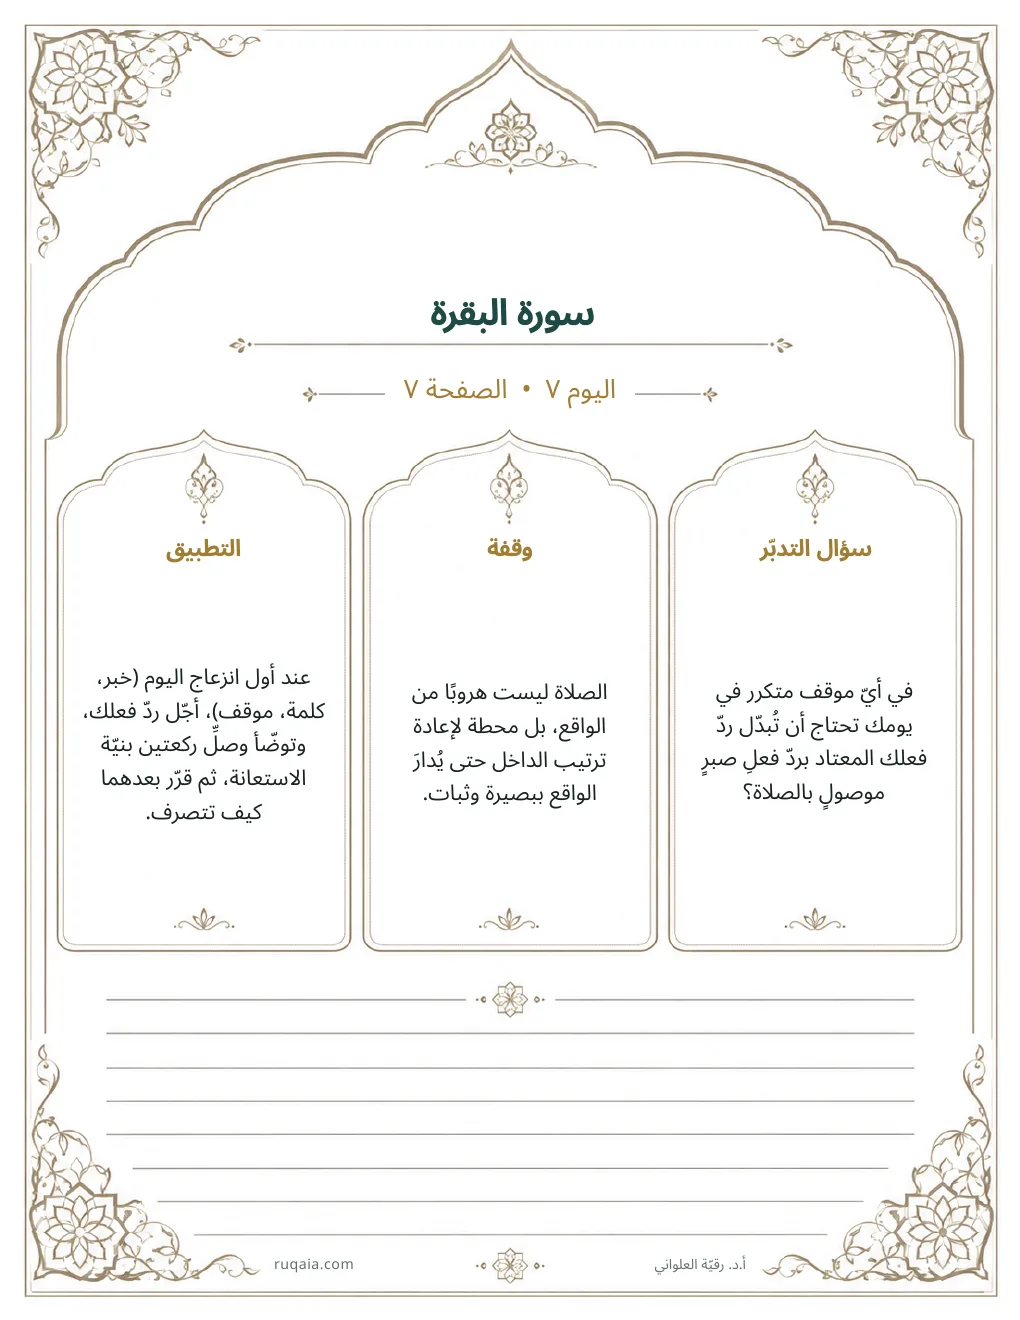 سورة البقرة
اليوم ٧ • الصفحة ٧
سؤال التدبّر
في أيّ موقف متكرر في
يومك تحتاج أن تُبدّل ردّ
فعلك المعتاد بردّ فعلِ صبرٍ
موصولٍ بالصلاة؟
وقفة
الصلاة ليست هروبًا من
الواقع، بل محطة لإعادة
ترتيب الداخل حتى يُدارَ
الواقع ببصيرة وثبات.
التطبيق
عند أول انزعاج اليوم (خبر،
كلمة، موقف)، أجّل ردّ فعلك،
وتوضّأ وصلِّ ركعتين بنيّة
الاستعانة، ثم قرّر بعدهما
كيف تتصرف.
أ.د. رقيّة العلواني
ruqaia.com